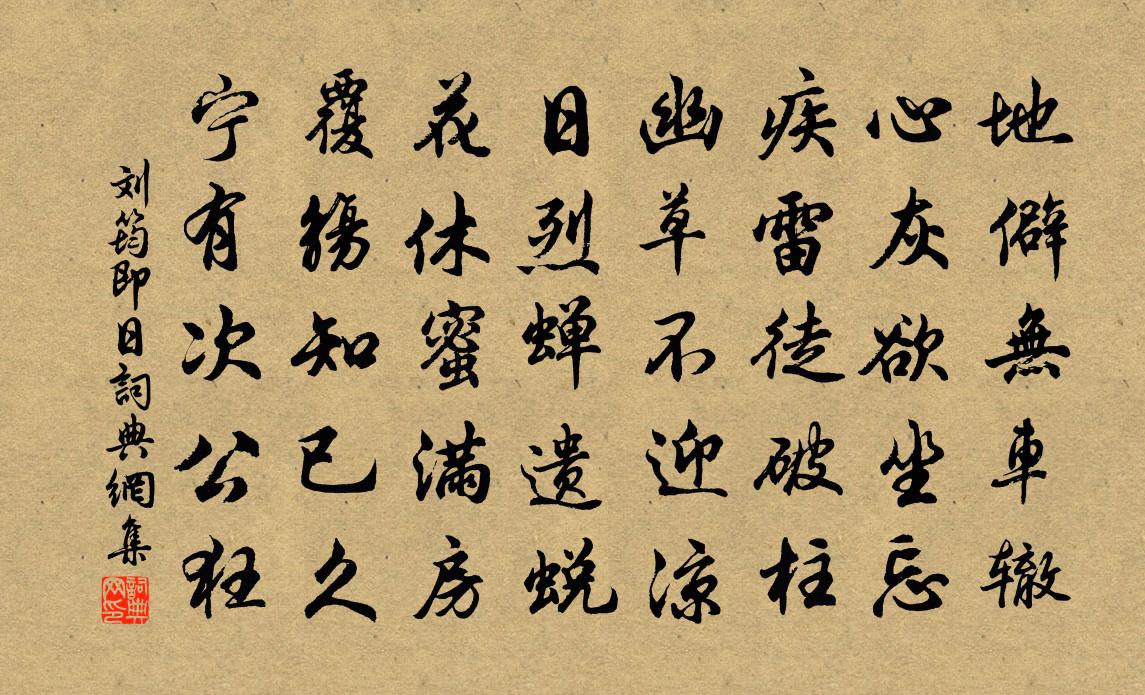 地僻無車辙
心灰欲坐忘
疾雷徒破柱
幽草不迎凉
日烈蝉遗蜕
花休蜜满房
覆觞知已久
宁有次公狂
刘筠即日詞典網集
詞典
网印